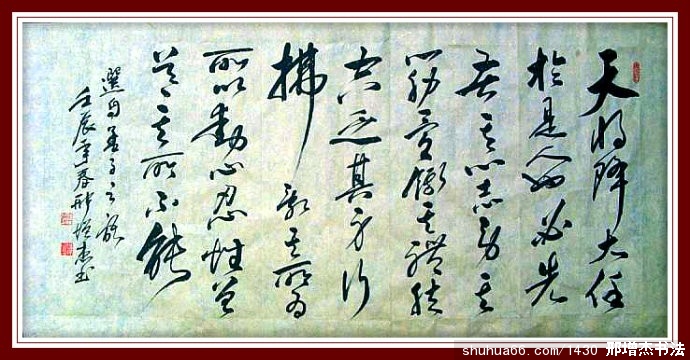 天将降大任
於是人也必先
苦其心志劳其
筋骨餓其體膚
空乏其身行
拂乱其所为
所以動心忍性曾
益其所不能
選自孟子之语
壬辰年春邢增杰书
shuhua66.com/1430 邢增杰书法